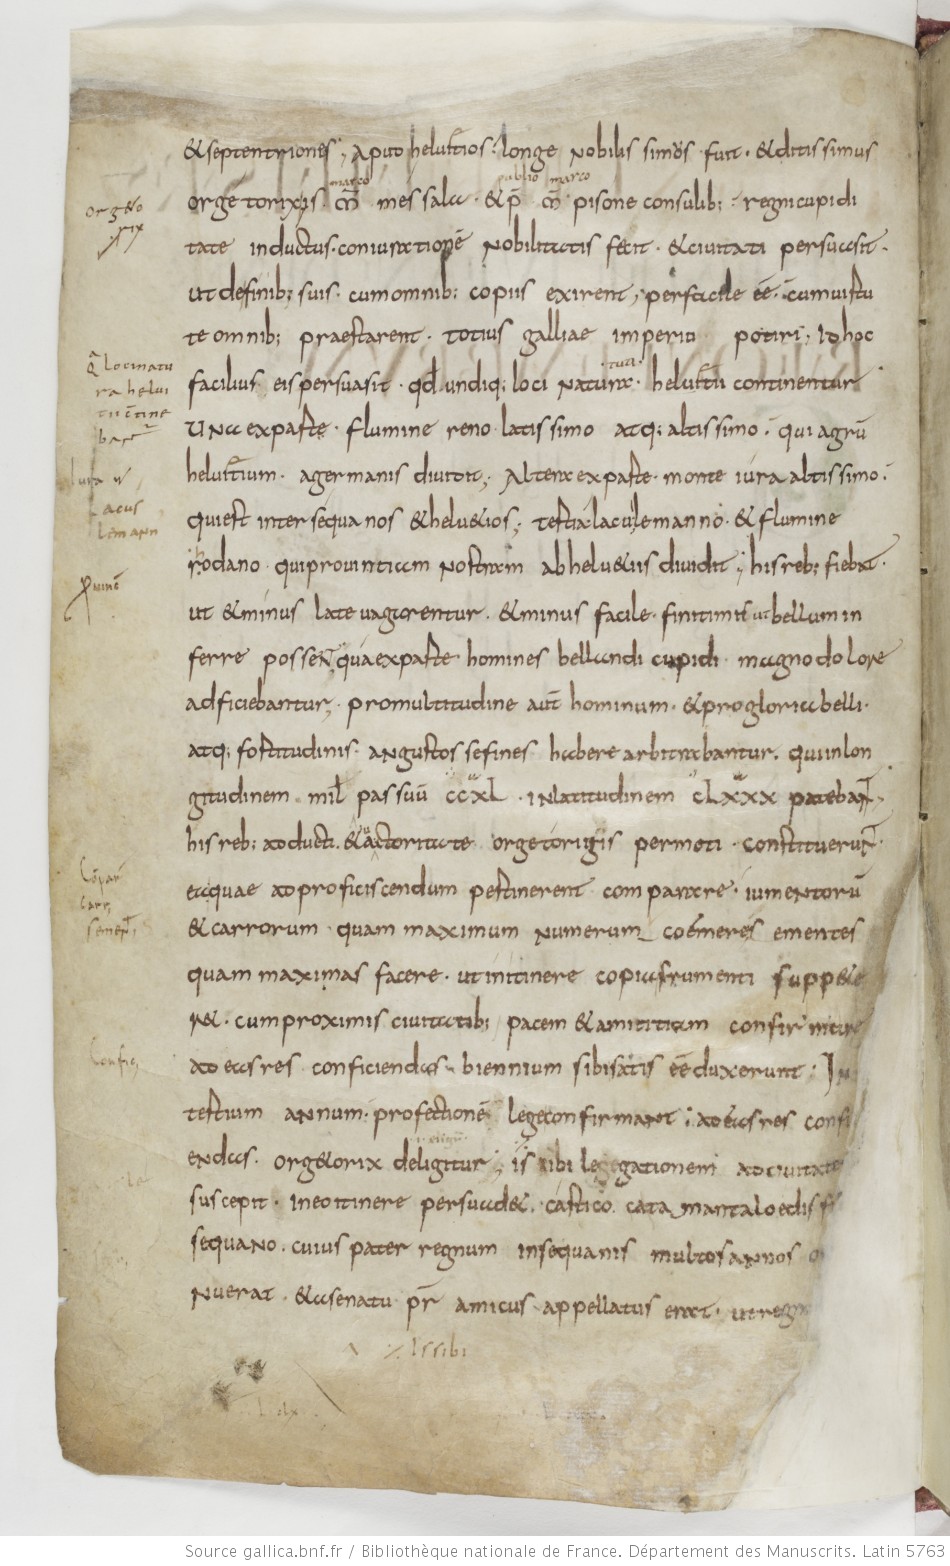 &septentriones; Aput heluetios longe nobilissimus fuit · & ditissimus
marco publio marco
orgetorixis · M̄ messala · & p̄ · M̄ · pisone consulib; · regni cupidi
orgeto
rix
tate inductus · coniurationē nobilitatis fecit · & ciuitati persuasit ·
ut definib; suis · cum omnib; copiis exirent; perfacile eē · cum uirtu
te omnib; praestarent · totius galliae imperio potiri; Id hoc
Q̄ loci natu
ra helui
tii cōtine
bant
facilius eis persuasit · qd̄ undiq; loci natura · heluetii continentur
una ex parte · flumine reno latissimo atq; altissimo · qui agrū
heluetium · a germanis diuidit; Altera ex parte · monte iura altissimo ·
Iura
Lacus
Lemann
qui est inter sequanos & heluetios; tertia lacu lemanno · & flumine
rhodano · qui prouintiam nostram ab heluetiis diuidit; his reb; fiebat ·
ut & minus late uagarentur · & minus facile · finitimis ut bellum in
ferre possent, qua ex parte homines bellandi cupidi · magno dolore
adficiebantur; pro multitudine aut̄ hominum · & pro gloria belli ·
atq; fortitudinis · angustos se fines habere arbitrabantur · qui in lon
gitudinem mil̄ passuū CCXL · in latitudinem CLXXX patebant;
his reb; adducti · & auctoritate orgetorigis permoti · constituerunt ·
Cōpar
carr
sement
ea quae ad proficiscendum pertinerent comparare · iumentorū
& carrorum quam maximum numerum coemeres ementes
quam maximas facere · ut in itinere copia frumenti suppete
r& · cum proximis ciuitatib; pacem & amicitiam confirmare
ad eas res conficiendas biennium sibi satis eē duxerunt; In
tertium annum · profectionē lege confirmant; ad eas res confi
endas · orgetorix deligitur; is sibi legegationem ad ciuitate
suscepit · in eo itinere persuad& · castico catamantaloedis fi
sequano · cuius pater regnum in sequanis multos annos o
nuerat · & a senatu pr̄ amicus appellatus erat · ut regn
Is sibi